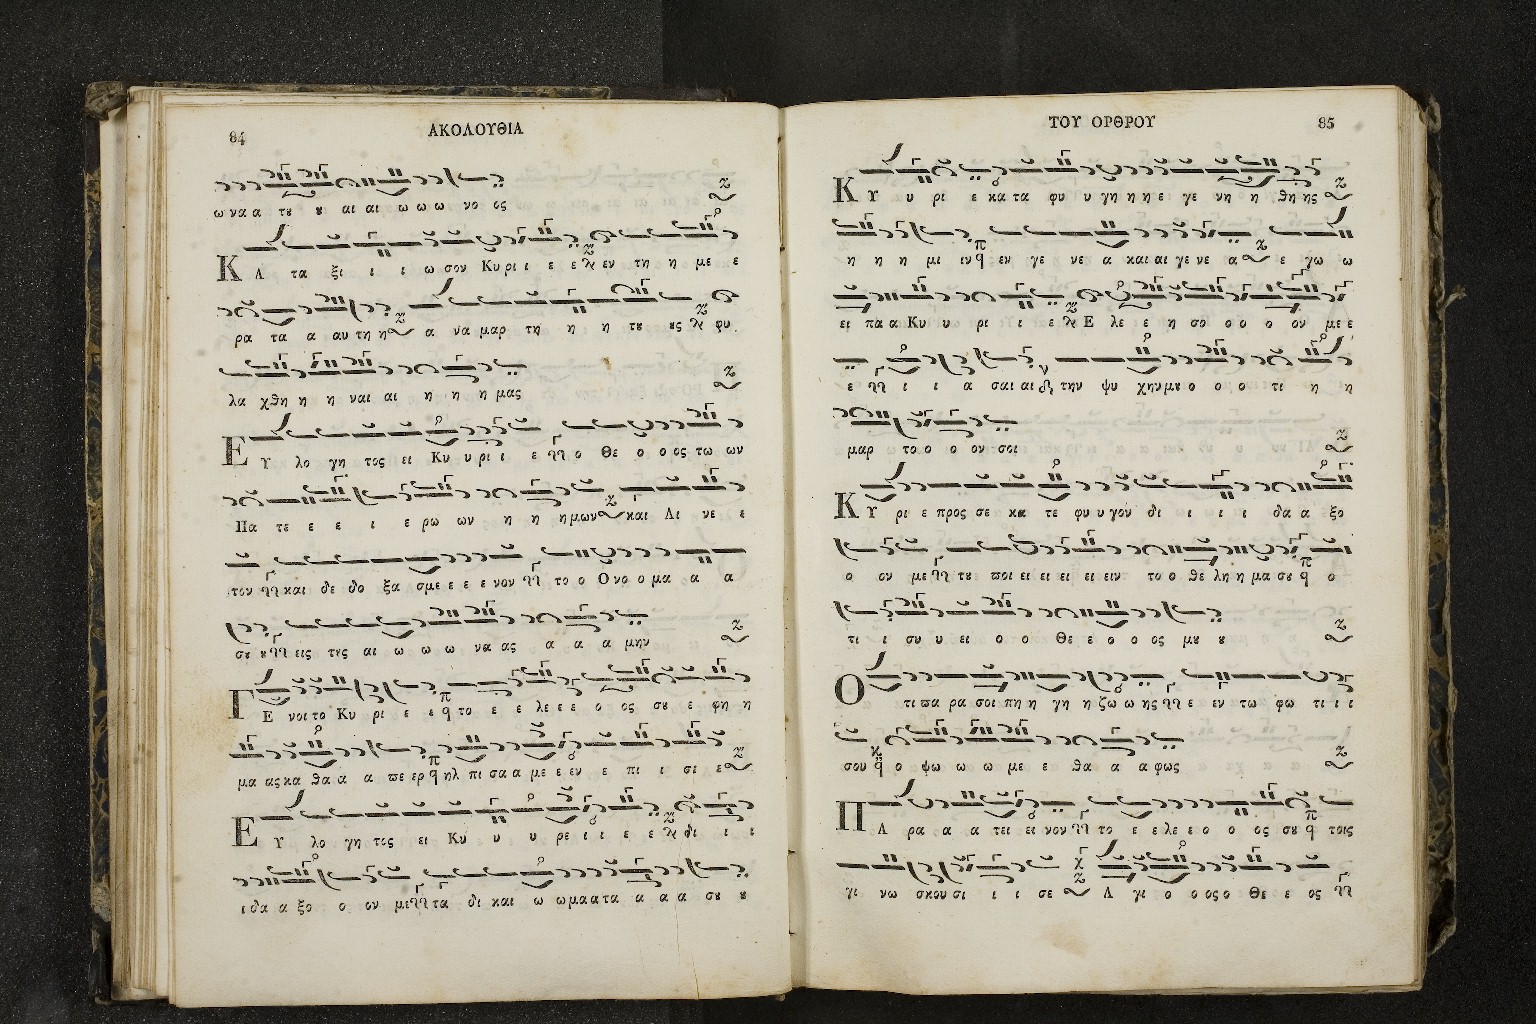 84
ΑΚΟΛΟΥΘΙΑ
ω να α τȣ ȣ αι αι ω ω ω νο ος
Κ Α τα ξι ι ι ω σον Κυ ρι ι ε ε εν τη η με ε
ρα τα α αυ τη η α να μαρ τη η η τȣ ȣς φυ
λα χθη η η ναι αι η η η μας
Ε Υ λο γη τος ει Κυ υ ρι ι ε ο Θε ο ο ος τω ων
Πα τε ε ε ι ε ρω ων η η ημων και Αι νε ε
τον και δε δο ξα σμε ε ε ε νον το ο Ο νο ο μα α α
σȣ ȣ εις τȣς αι ω ω ω να ας α α α μην
Γ Ε νοι το Κυ ρι ε ε το ε ε λε ε ε ο ος σȣ ε φη η
μα ας κα θα α α πε ερ ηλ πι σα α με ε εν ε πι ι σι ε
Ε Υ λο γη τος ει Κυ υ υ ρε ι ι ε ε δι ι ι
ι δα α ξο ο ον με τα δι και ω ω μα α τα α α α σȣ ȣ
ΤΟΥ ΟΡΘΡΟΥ
85
Κ Υ υ ρι ε κα τα φυ υ γη η η ε γε νη η θη ης
η η η μι ιν εν γε νε α και αι γε νε α ε γω ω
ει πα α Κυ υ ρι ι ε Ε λε ε η σο ο ο ο ον με ε
ε ι ι α σαι αι την ψυ χην μȣ ο ο ο τι η η
μαρ το ο ο ον σοι
Κ Υ ρι ε προς σε κα τε φυ υ γον δι ι ι ι δα α ξο
ο ον με τȣ ποι ει ει ει ει ειν το ο θε λη η μα σȣ ο
τι ι συ υ ει ο ο Θε ε ο ο ος μȣ ȣ
Ο τι πα ρα σοι πη η γη η ζω ω ης ε εν τω φω τι ι ι
σου ο ψω ω ω με ε θα α α φως
Π Α ρα α α τει ει νον το ε ε λε ε ο ο ος σȣ τοις
γι νω σκου σι ι ι σε Α γι ο ο ος ο Θε ε ος